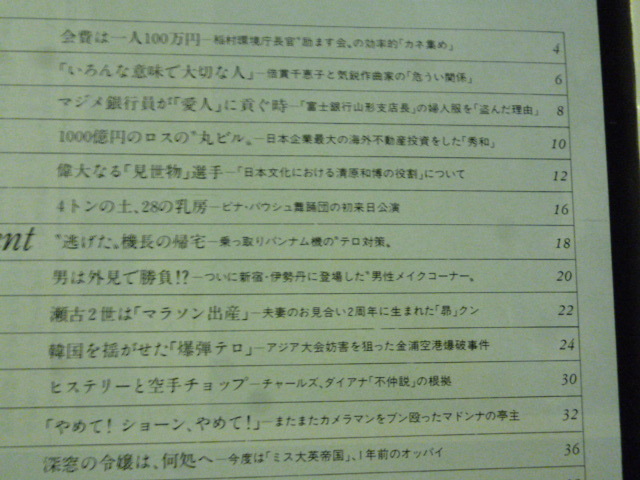 会費は一人100万円―稲村環境庁長官〝励ます会〟の効率的「カネ集め」 4
「いろんな意味で大切な人」―倍賞千恵子と気鋭作曲家の「危うい関係」 6
マジメ銀行員が「愛人」に貢ぐ時―「富士銀行山形支店長」の婦人服を「盗んだ理由」 8
1000億円のロスの〝丸ビル〟―日本企業最大の海外不動産投資をした「秀和」 10
偉大なる「見世物」選手―「日本文化における清原和博の役割」について 12
4トンの土、28の乳房―ピナ・バウシュ舞踊団の初来日公演 16
ent 〝逃げた〟機長の帰宅―乗っ取りパンナム機の〝テロ対策〟 18
男は外見で勝負!?―ついに新宿・伊勢丹に登場した〝男性メイクコーナー〟 20
瀬古2世は「マラソン出産」―夫妻のお見合い2周年に生まれた「昴」クン 22
韓国を揺がせた「爆弾テロ」―アジア大会妨害を狙った金浦空港爆破事件 24
ヒステリーと空手チョップ―チャールズ、ダイアナ「不仲説」の根拠 30
「やめて! ショーン、やめて!」―またまたカメラマンをブン殴ったマドンナの亭主 32
深窓の令嬢は、何処へ―今度は「ミス大英帝国」、1年前のオッパイ 36